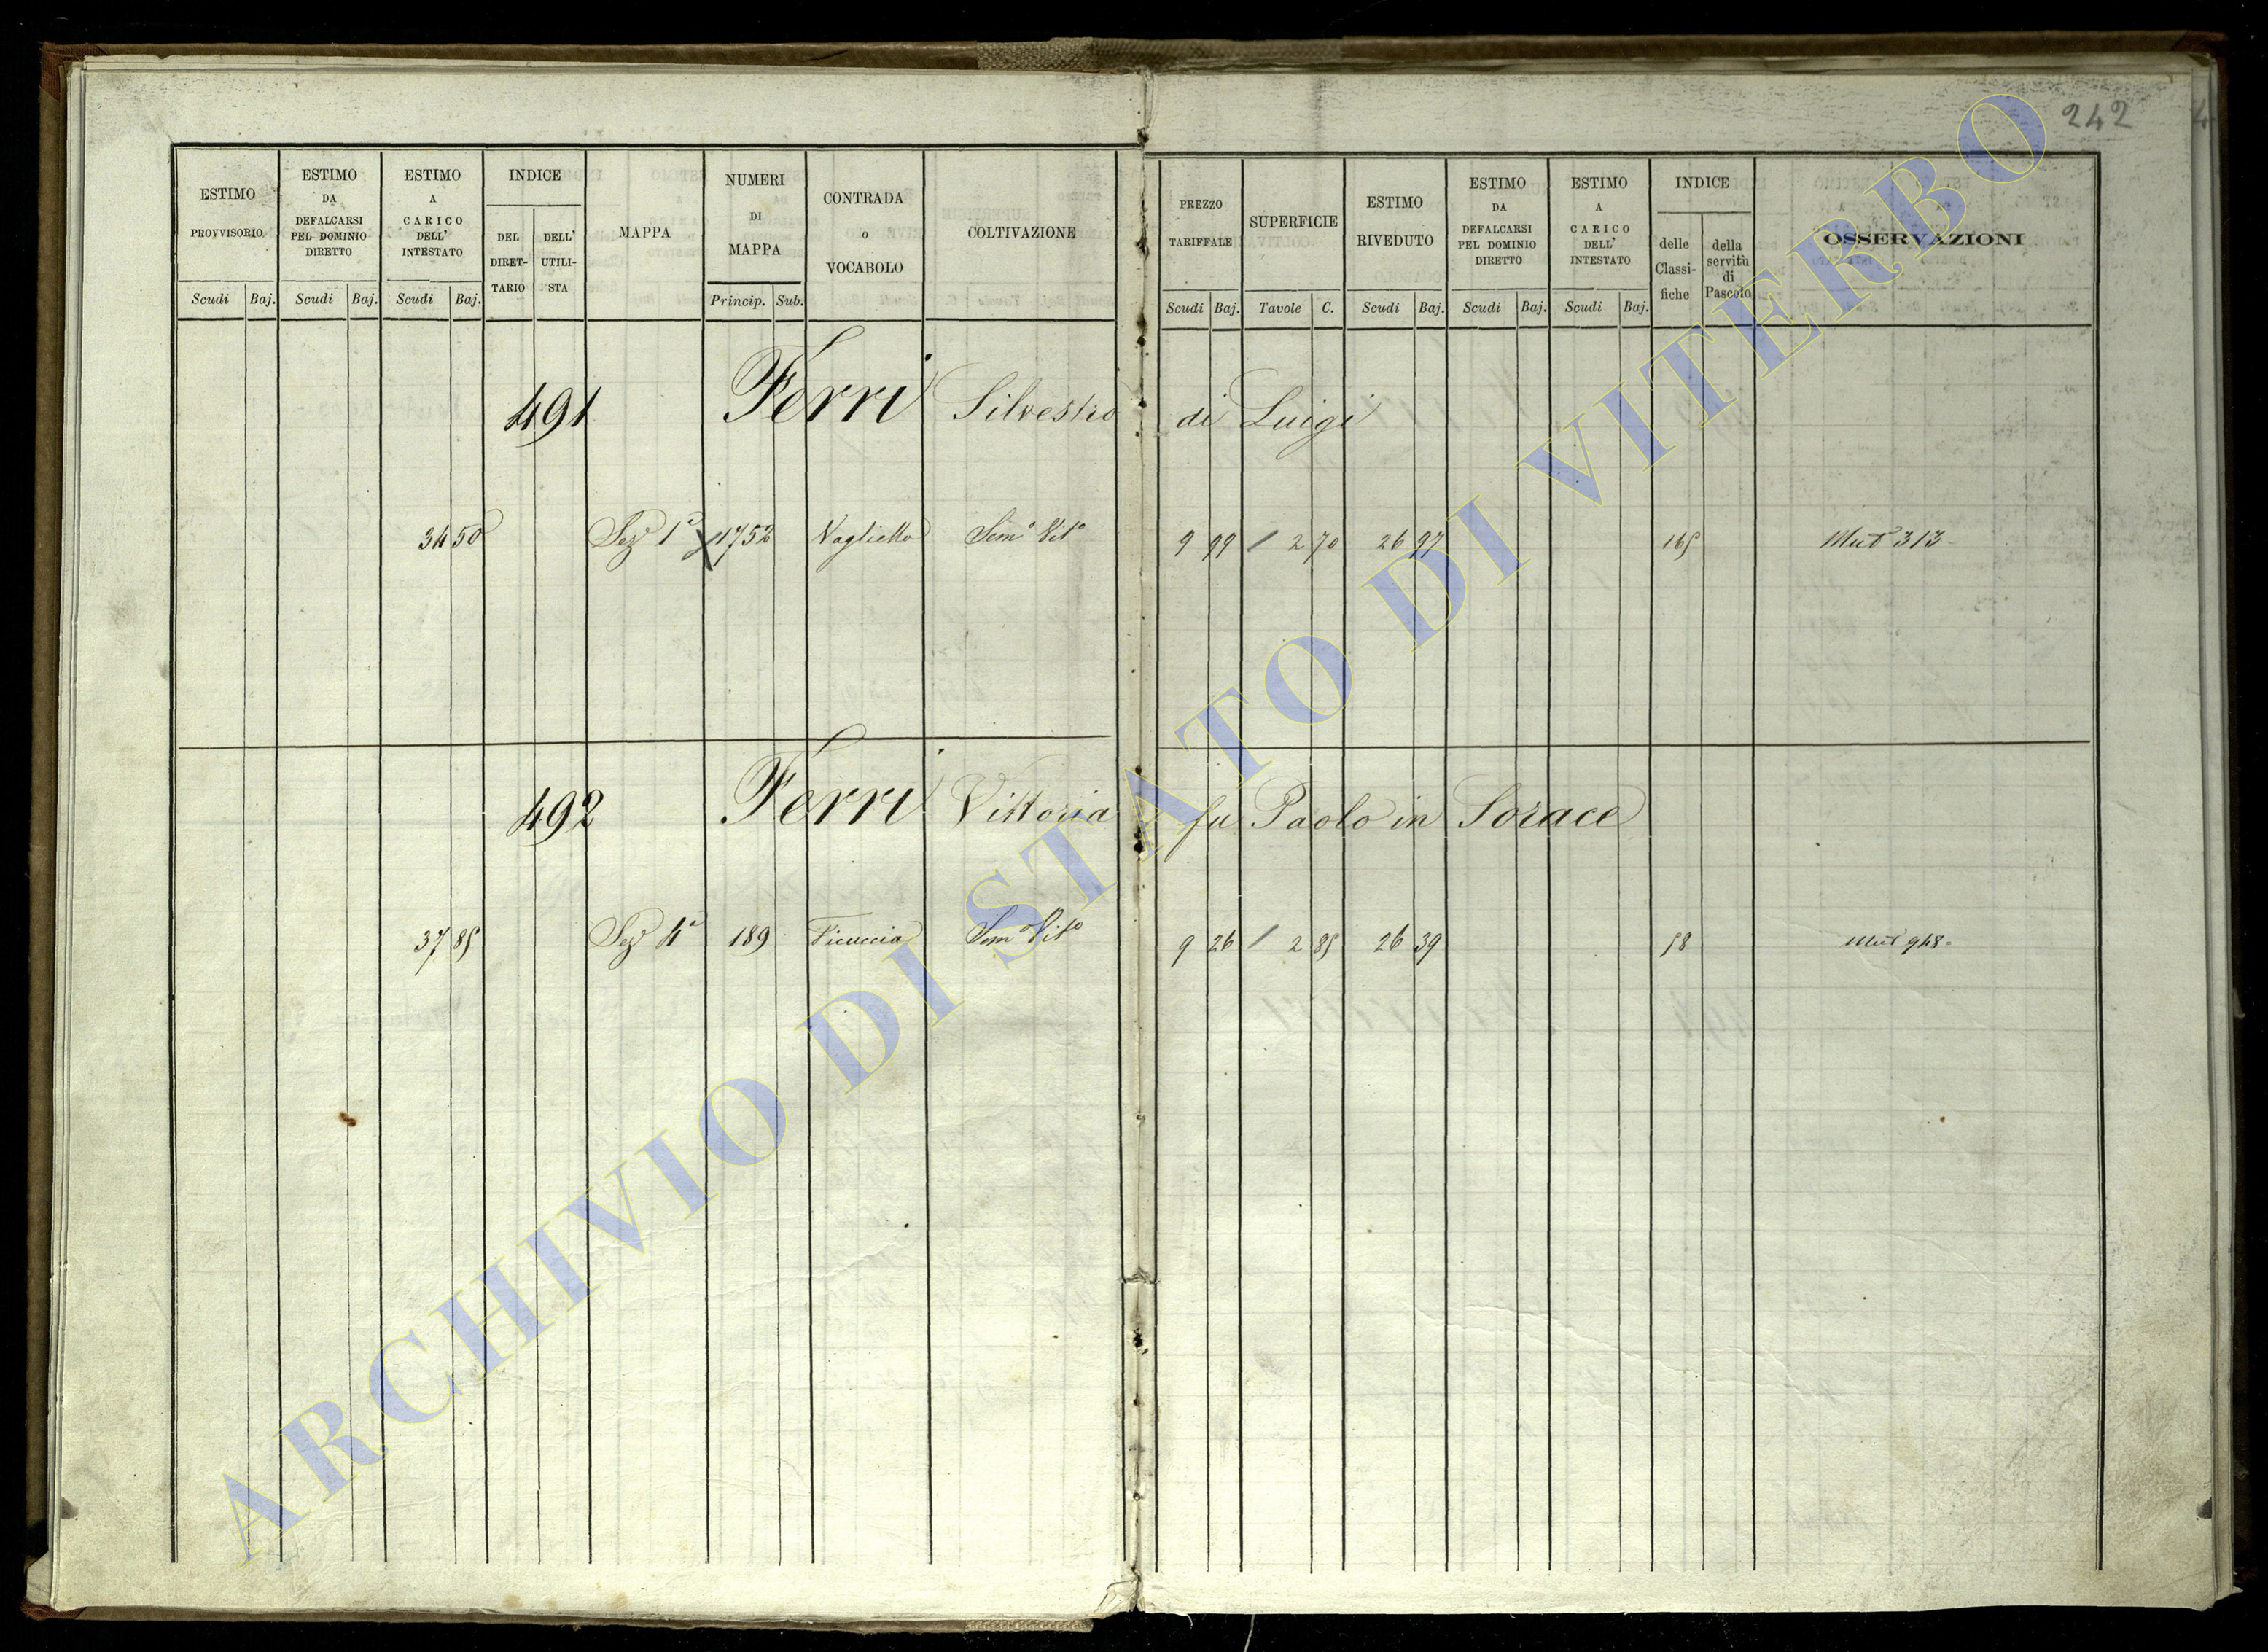 242
ESTIMO PROVVISORIO Scudi Baj.
ESTIMO DA DEFALCARSI PEL DOMINIO DIRETTO Scudi Baj.
ESTIMO A CARICO DELL' INTESTATO Scudi Baj.
INDICE DEL DIRET-TARIO DELL' UTILI-STA
MAPPA
NUMERI DI MAPPA Princip. Sub.
CONTRADA o VOCABOLO
COLTIVAZIONE
PREZZO TARIFFALE Scudi Baj.
SUPERFICIE Tavole C.
ESTIMO RIVEDUTO Scudi Baj.
ESTIMO DA DEFALCARSI PEL DOMINIO DIRETTO Scudi Baj.
ESTIMO A CARICO DELL' INTESTATO Scudi Baj.
INDICE delle Classi-fiche della servitù di Pascolo
OSSERVAZIONI
491 Ferri Silvestro di Luigi
34 50 Sez 1ª 1752 Vaglietto Semº Vitº 9 99 2 70 26 97 165 Mut 313
492 Ferri Vittoria fu Paolo in Sorace
37 85 Sez 4ª 189 Ficuccia Semº Vitº 9 26 2 85 26 39 58 Mut 948
ARCHIVIO DI STATO DI VITERBO